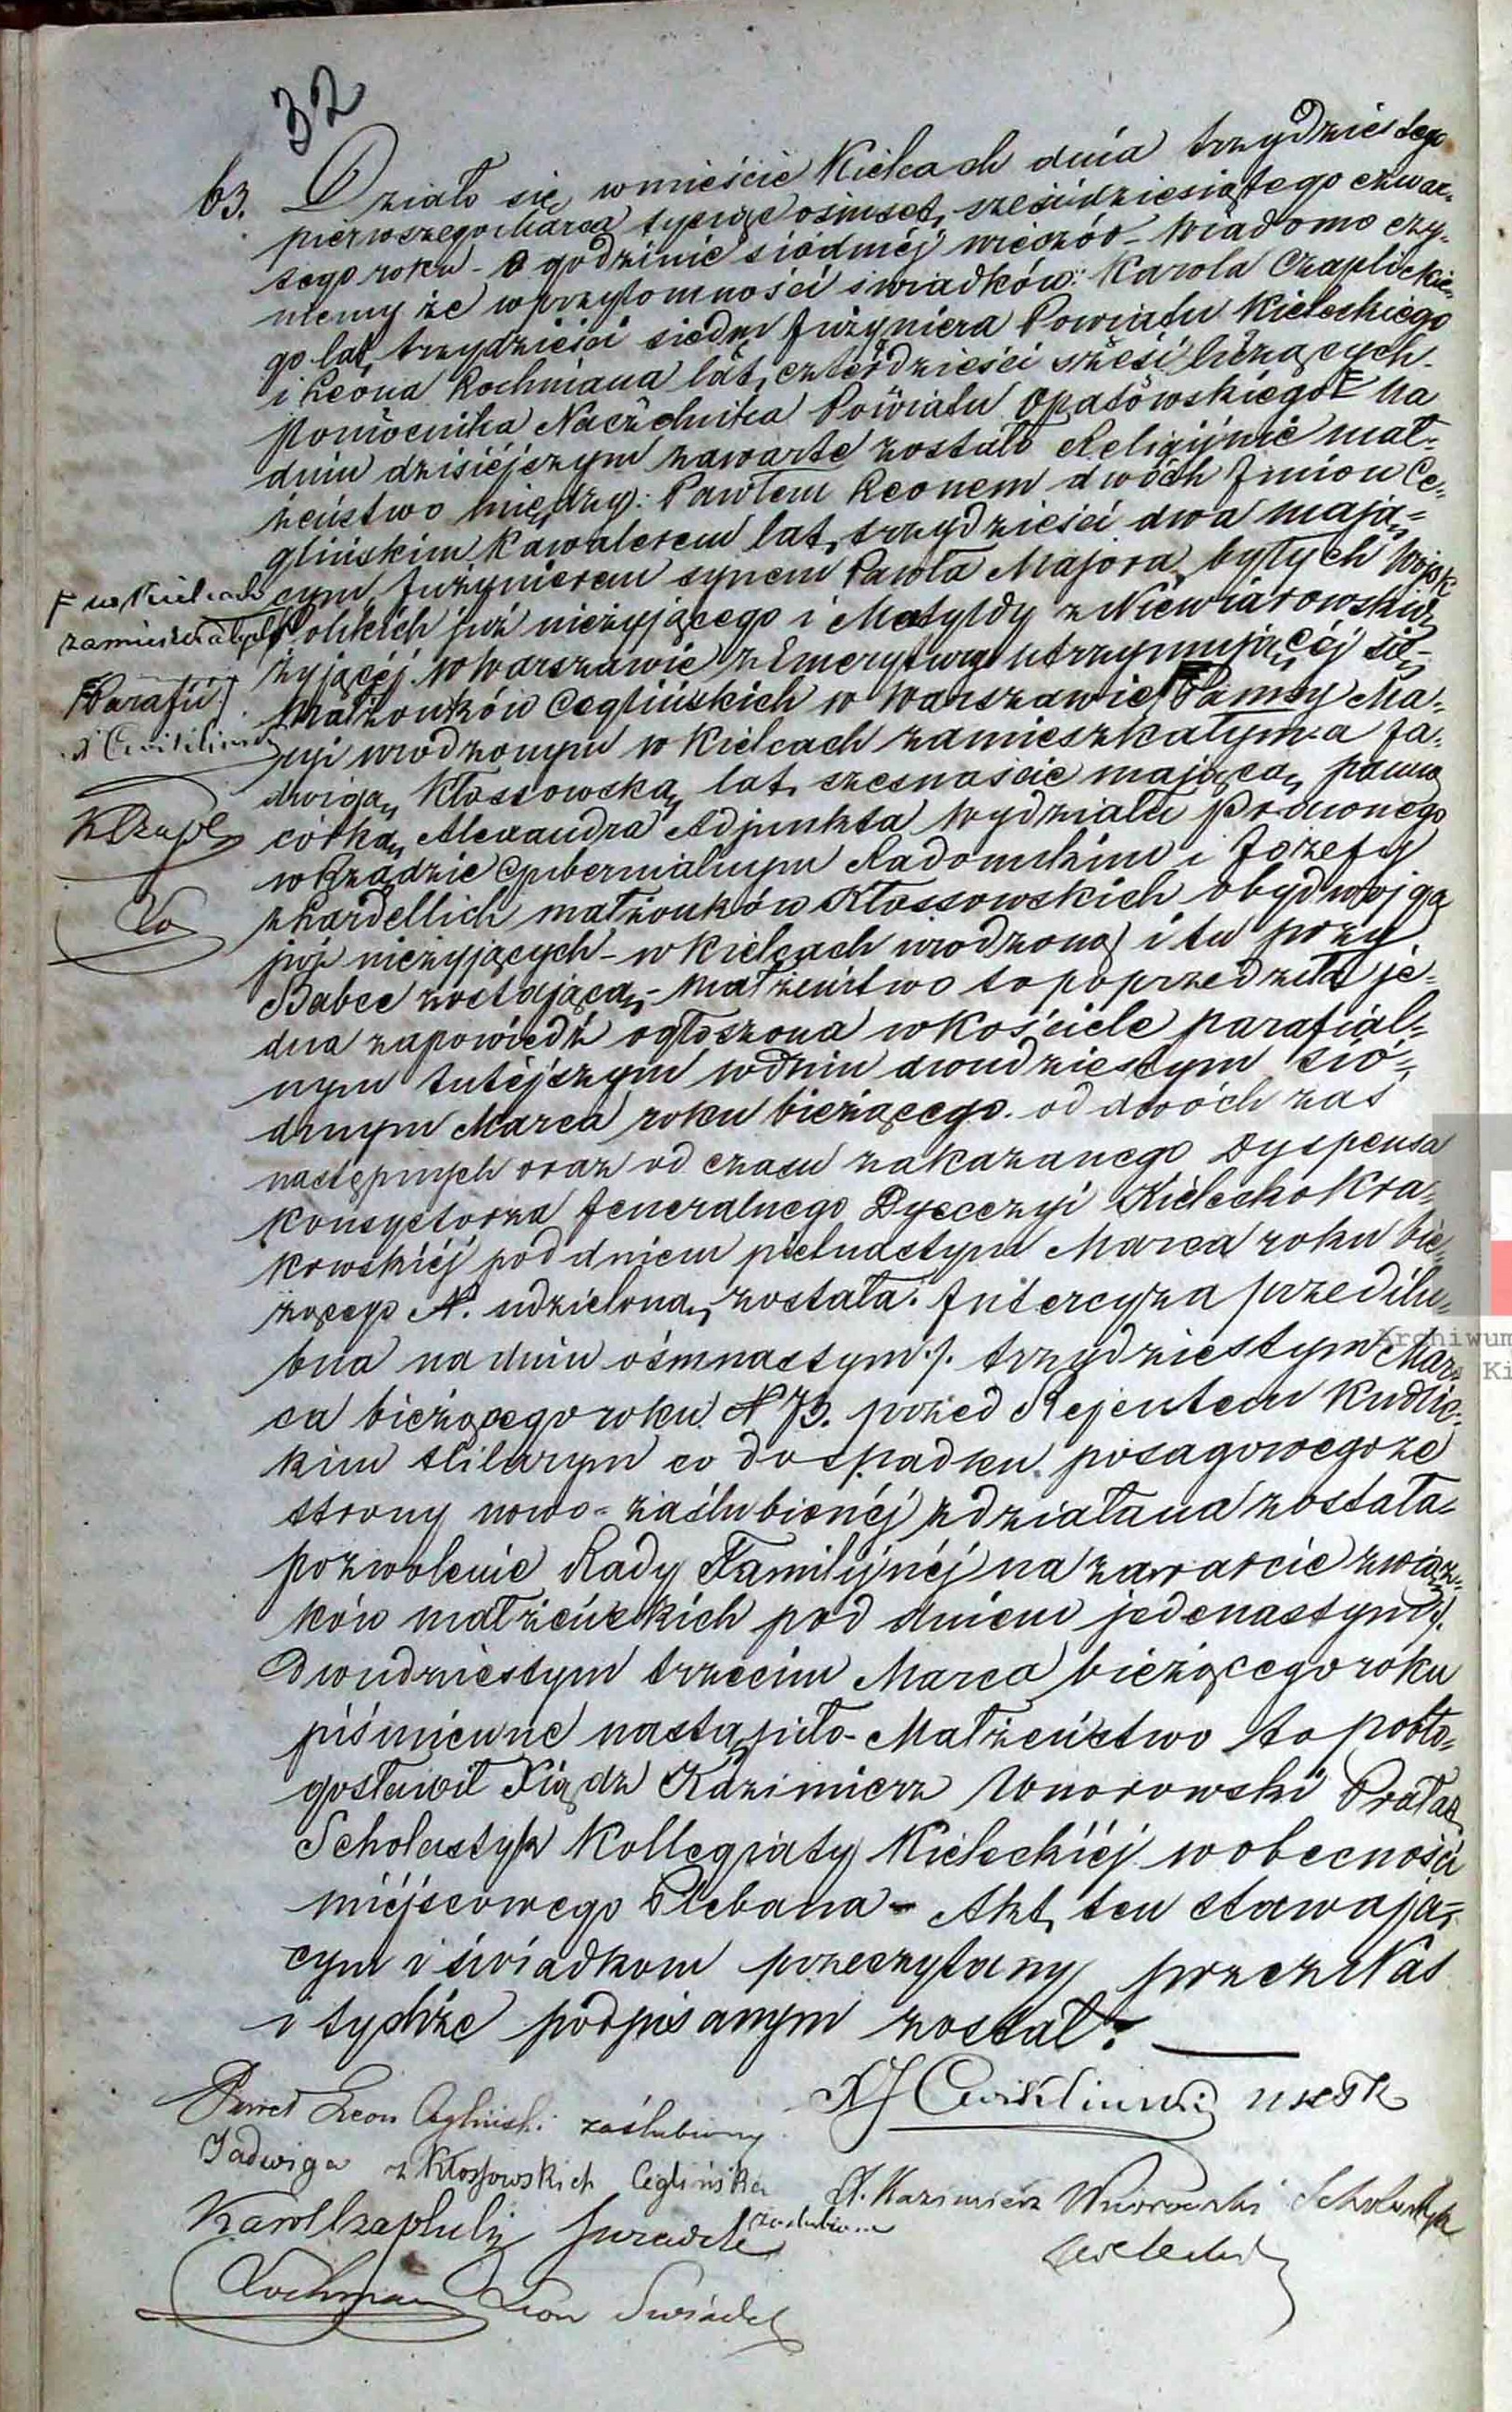 32
63. Działo się w mieście Kielcach dnia trzydziestego
pierwszego Marca tysiąc ośmset sześćdziesiątego czwar-
tego roku - o godzinie siódméj wieczór - Wiadomo czy-
niemy że w przytomności świadków: Karola Czaplickie-
go lat trzydzieści siedm Inżyniera Powiatu Kieleckiego
i Leona Lochmana lat czterdzieści sześć liczących
pomocnika Naczelnika Powiatu Opatowskiego F na
dniu dzisiéjszym zawarte zostało Religijnie mał-
żeństwo między: Pawłem Leonem dwóch Imion Ce-
glińskim Kawalerem lat trzydzieści dwa mają-
cym, Inżynierem synem Pawła Majora byłych Wojsk
Polskich już nieżyjącego i Matyldy z Niewiarowskich
żyjącéj w Warszawie z Emerytury utrzymującéj się
Małżonków Ceglińskich w Warszawie F Panny Ma-
ryi urodzonym w Kielcach zamieszkałym - a Ja-
dwigą Kłossowską lat szesnaście mającą, panną
córką Alexandra Adjunkta Wydziału Prawnego
w Rządzie Gubernialnym Radomskim i Józefy
z Lardellich małżonków Kłossowskich obydwojga
już nieżyjących - w Kielcach urodzoną i tu przy
Babce zostającą - Małżeństwo to poprzedziła je-
dna zapowiedź ogłoszona w Kościele parafial-
nym tutéjszym w dniu dwudziestym siód-
dmym Marca roku bieżącego. od dwóch zaś
następnych oraz od czasu zakazanego Dyspensa
Konsystorza Jeneralnego Dyecezyi Kielecko Kra-
kowskiéj pod dniem piętnastym Marca roku bie-
żącego N. udzieloną została. Intercyza przedślu-
bna na dniu ośmnastym /. trzydziestym Mar-
ca bieżącego roku N 73. przed Rejentem Kudlic-
kim co do spadku posagowego ze
strony nowo-zaślubionéj zdziałana została
pozwolenie Rady Familijnéj na zawarcie związ-
ków małżeńskich pod dniem jedenastym /.
Dwudziestym trzecim Marca bieżącego roku
piśmienne nastąpiło - Małżeństwo to pobło-
gosławił Xiądz Kazimierz Wnorowski Prałat
Scholastyk Kollegiaty Kieleckiéj w obecności
miéjscowego Plebana - Akt ten stawają-
cym i świadkom przeczytany przez Nas
i tychże podpisanym został. —
F w Kielcach
zamieszkałych
F Parafii
X Ćwikliński
KCzapl
Lo
Paweł Leon Cegliński zaślubiony
Jadwiga z Kłossowskich Ceglińska
zaślubiona
Karol Czaplicki świadek
Lochman Leon Świadek
XJ Ćwikliński
X. Kazimierz Wnorowski Scholastyk
Kielecki
Archiwum
Ki